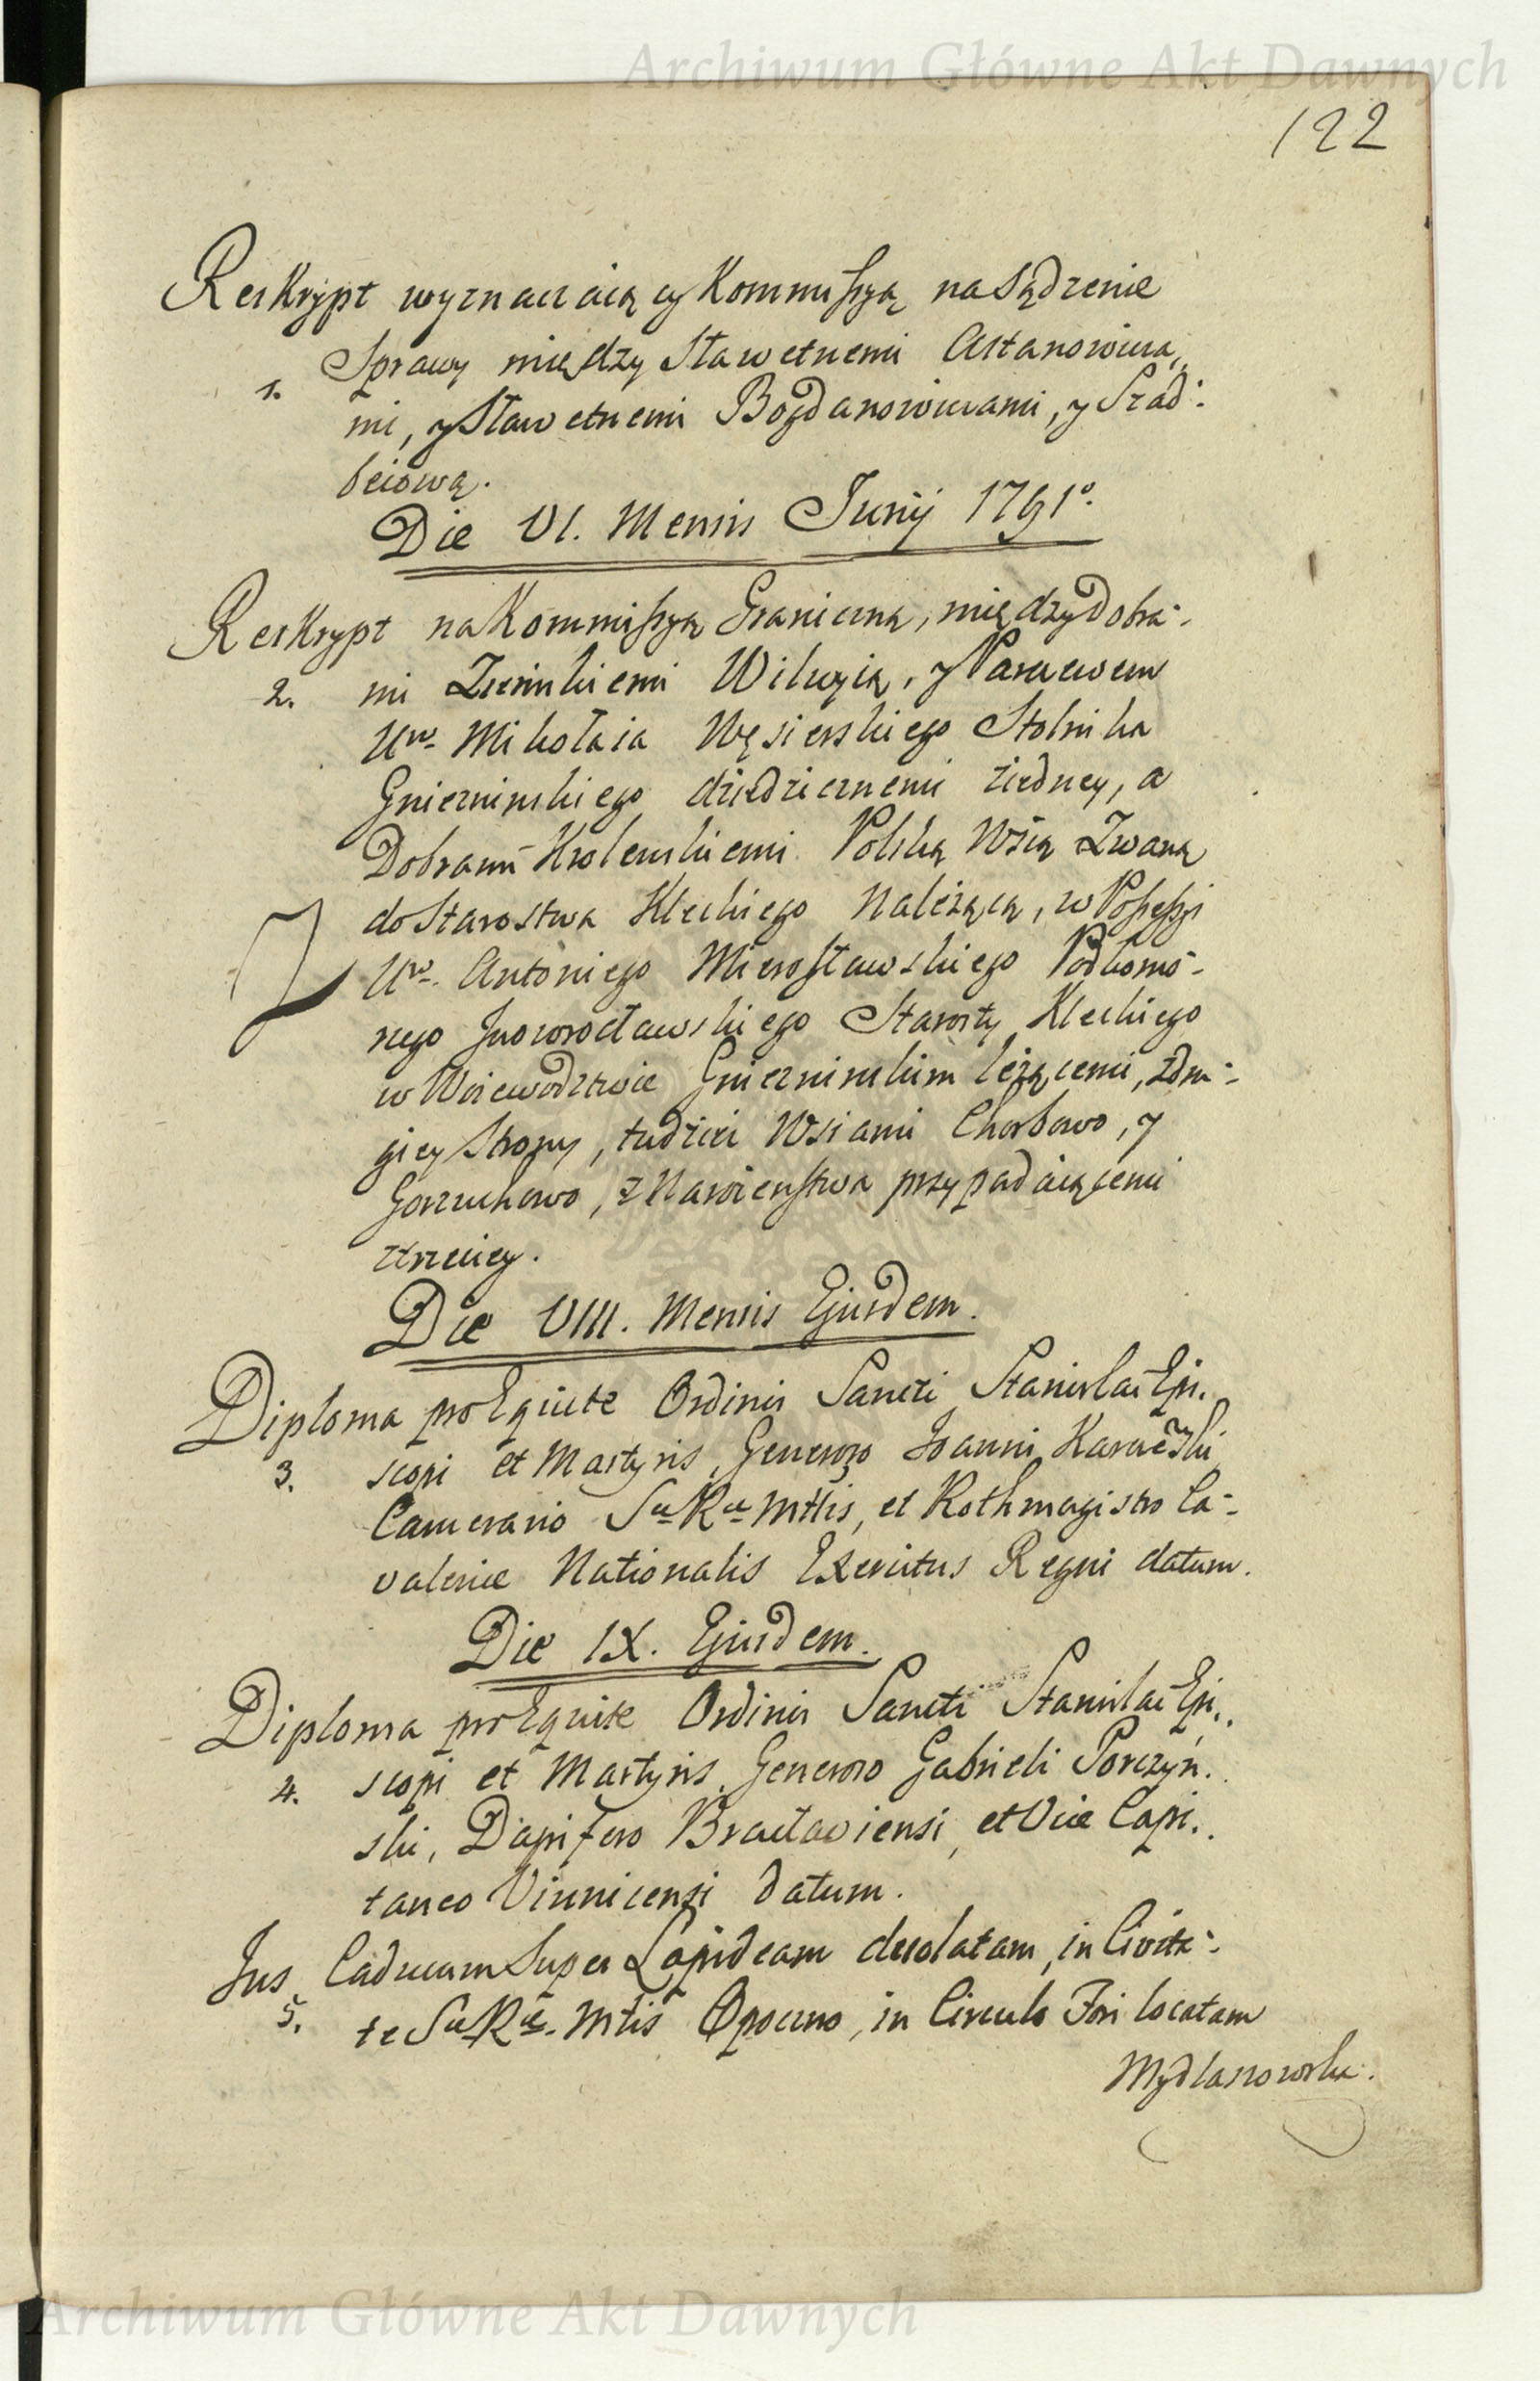 Archiwum Główne Akt Dawnych
122
Reskrypt wyznaczaiący Kommissyą na Sądzenie
Sprawy między Sławetnemi Astanowicza-
1.
mi, y Sławetnemi Bogdanowiczami, y Szad-
beiową.
Die VI. Mensis Junij 1791o.
Reskrypt na Kommissyą Graniczną, między Dobra-
2. mi Ziemskiemi Wilkoyią, y
Uro Mikołaia Węsierskiego Stolnika
Gniezninskiego dziedzicznemi ziedney, a
Dobrami Krolewskiemi Polską Wsią Zwaną
do Starostwa Kleckiego Należącą, w Possessyi
Uro. Antoniego Mierosławskiego Podkomo-
rzego Inowrocławskiego Starosty Kleckiego
w Woiewodztwie Gniezninskim leżącemi, zdru-
giey Strony, tudzież Wsiami Charbowo, y
Gorzuchowo, z przypadaiącemi
ztrzeciey.
Die VIII. Mensis Ejusdem.
Diploma pro Equite Ordinis Sancti Stanislai Epi-
3. scopi et Martyris, Generoso Joanni Karczeski
Camerario Sae Rae Mttis, et Rothmagistro Ca-
valeriae Nationalis Exercitus Regni datum.
Die IX. Ejusdem.
Diploma pro Equite Ordinis Sancti Stanislai Epi-
4. scopi et Martyris Generoso Gabrieli Porczyn-
ski, Dapifero Bractaviensi, et Vice Capi-
taneo Vinnicensi datum.
Jus Caducum Super Lapideam desolatam, in Civita-
5.
te Sae Rae Mttis Opoczno, in Circulo Fori locatam
Mydlarzowska.
Archiwum Główne Akt Dawnych